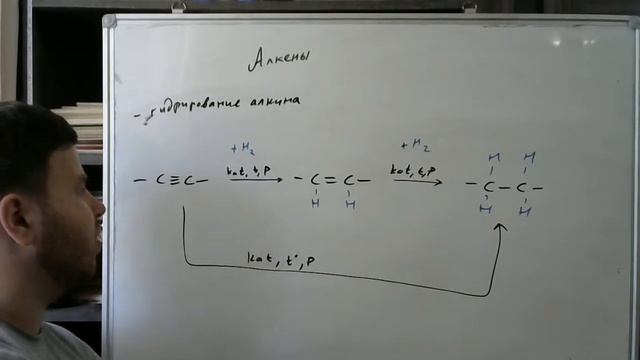 Алкены
- гидрирование алкина
+ H₂
+ H₂
kat, t, p
kat, t, p
– C≡C –
– C = C –
H H
H H
– C – C –
H H
kat, t°, p